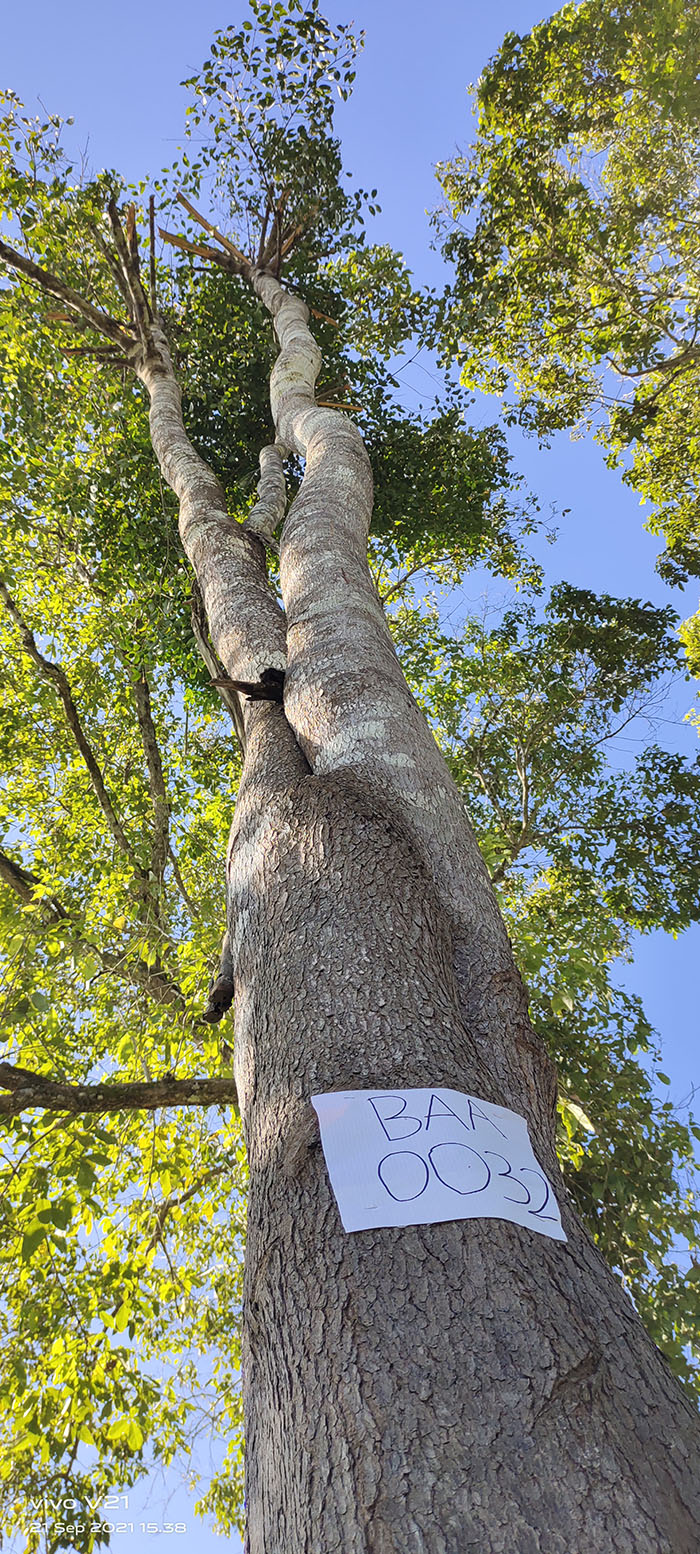 BAA
0032
vivo V21
21 Sep 2021 15.38